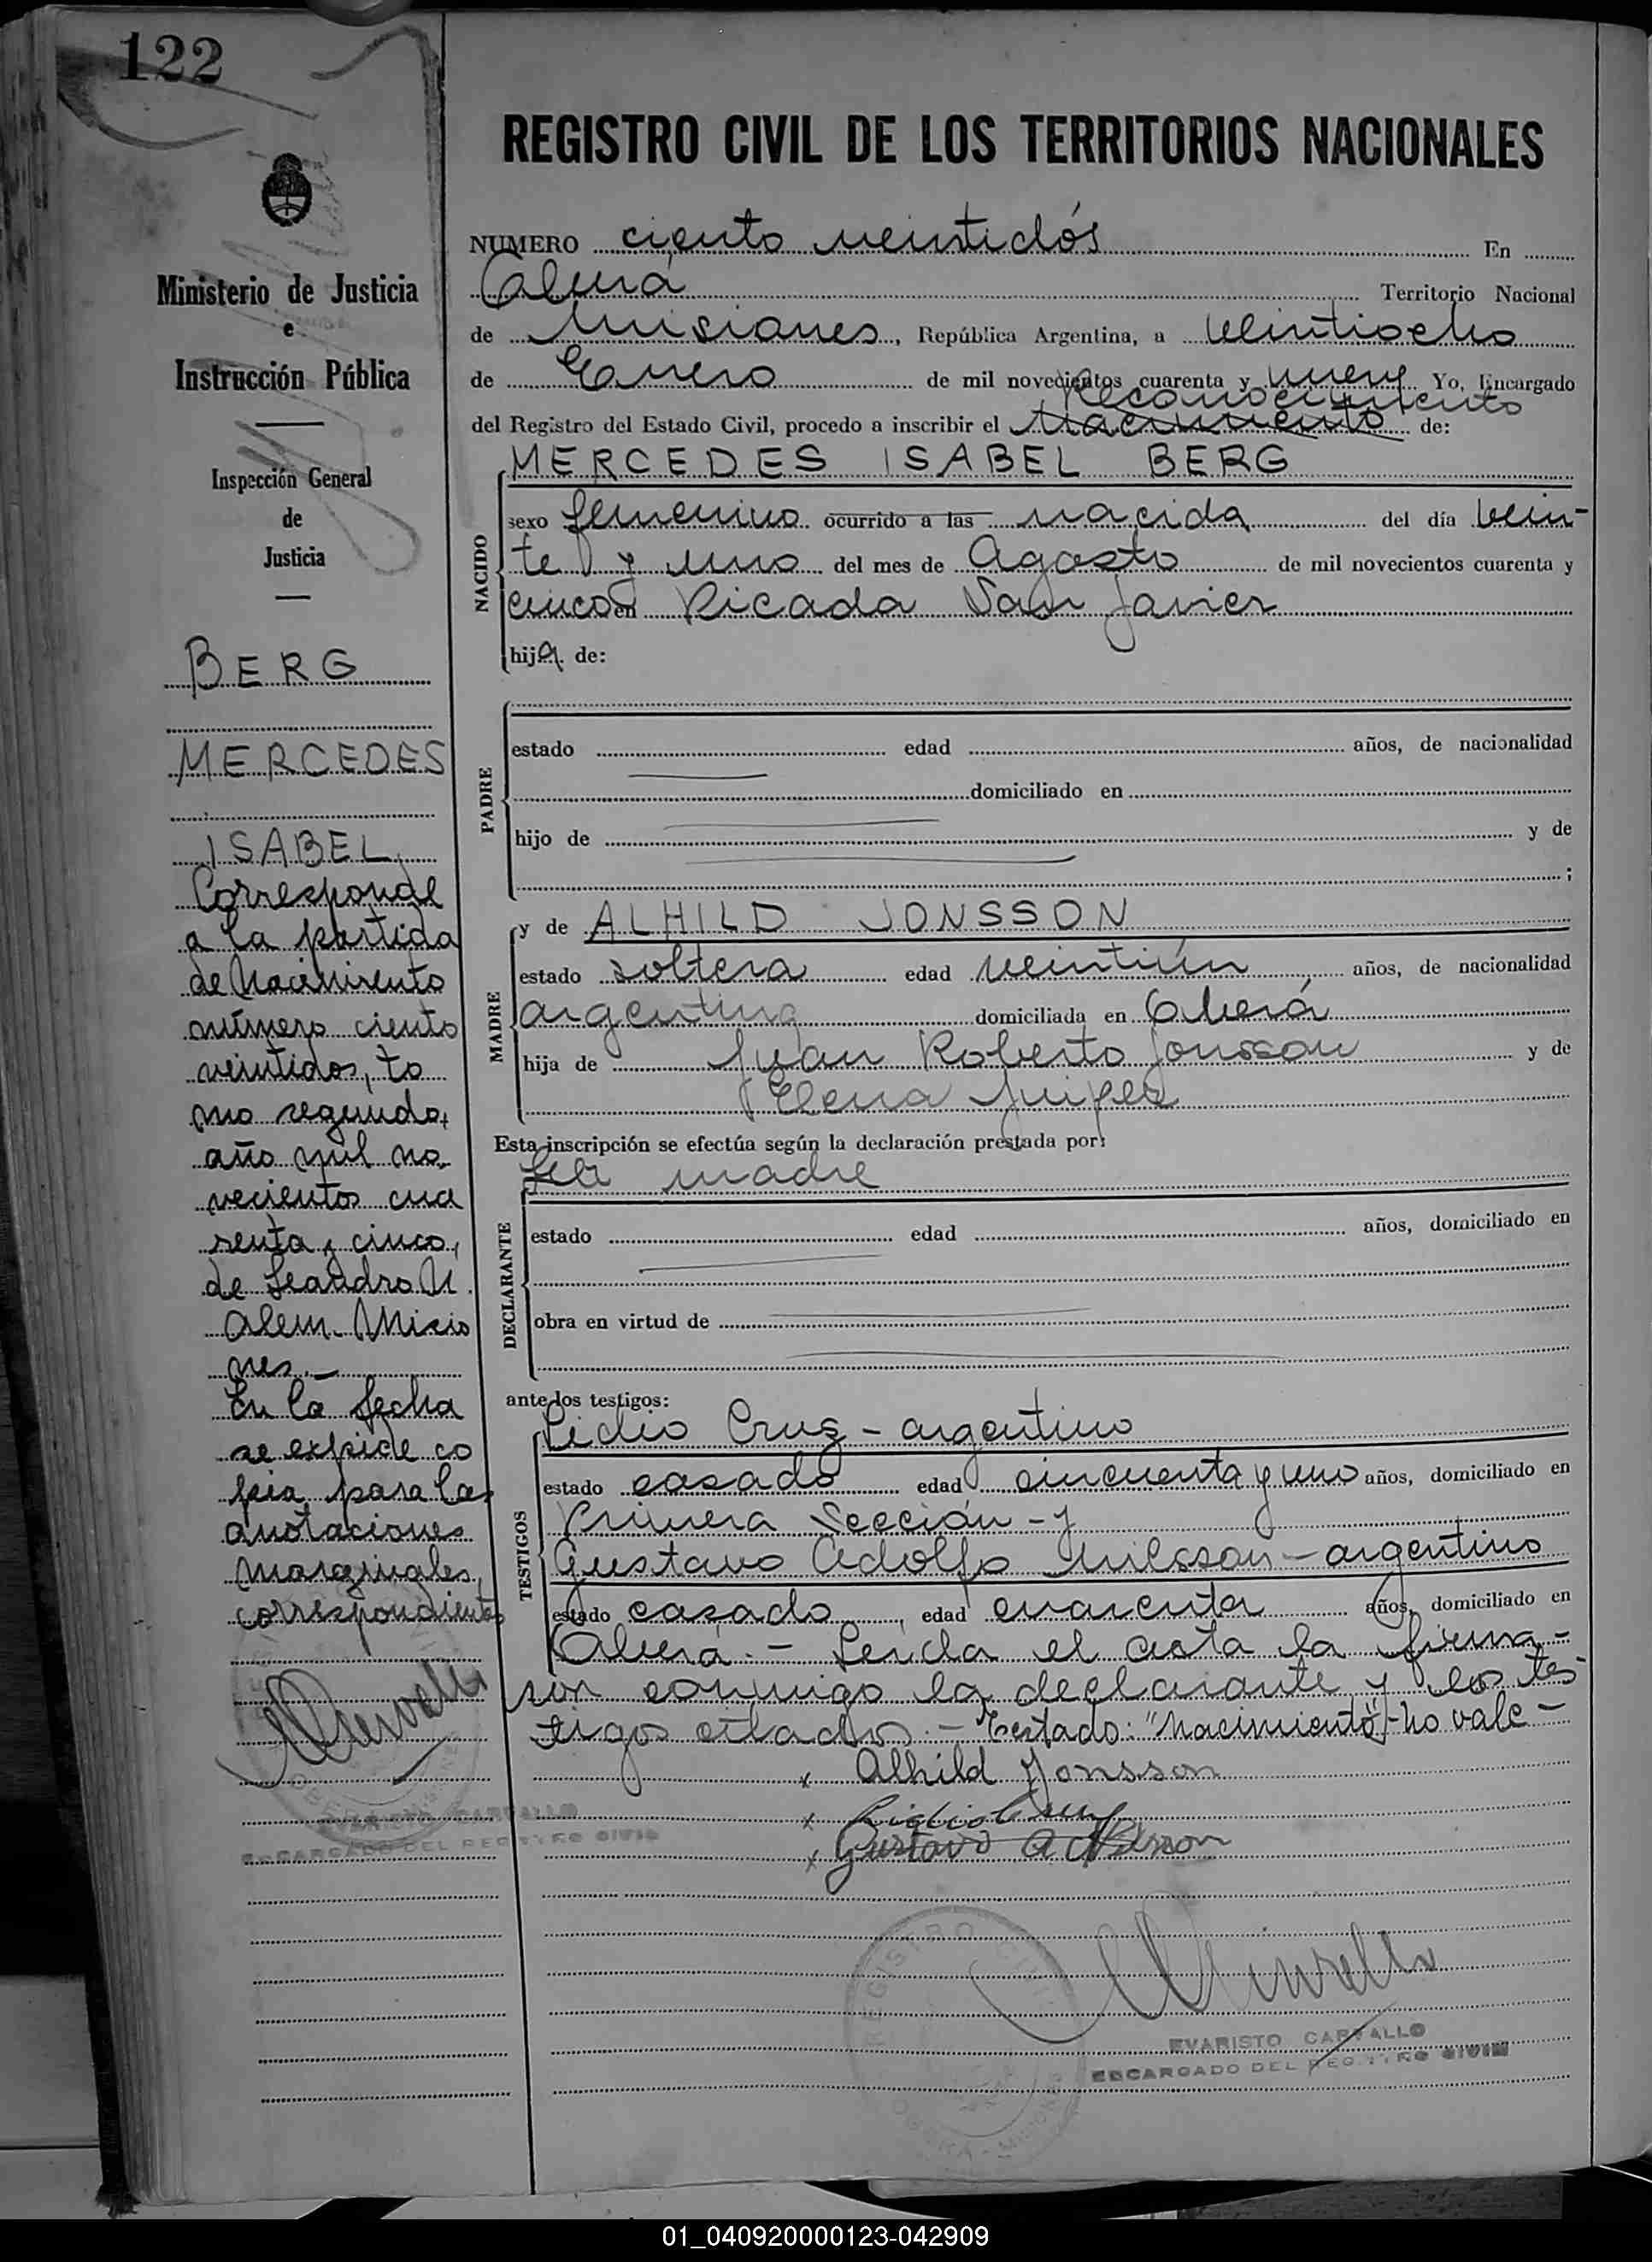 122
Ministerio de Justicia
e
Instrucción Pública
Inspección General
de
Justicia
BERG
MERCEDES
ISABEL
Corresponde
a la partida
de Nacimiento
número ciento
veintidos, to
mo segundo,
año mil no
vecientos cua
renta y cinco,
de Leandro N.
Alem. Misio
nes.-
En la fecha
se expide co
pia para las
anotaciones
marginales
correspondientes
EVARISTO CARVALLO
ENCARGADO DEL REGISTRO CIVIL
REGISTRO CIVIL DE LOS TERRITORIOS NACIONALES
NUMERO ciento veintidós En
Oberá Territorio Nacional
de Misiones, República Argentina, a veintiocho
de Enero de mil novecientos cuarenta y nueve Yo, Encargado
Reconocimiento
del Registro del Estado Civil, procedo a inscribir el nacimiento de:
MERCEDES ISABEL BERG
NACIDO
sexo femenino ocurrido a las nacida del día vein-
te y uno del mes de Agosto de mil novecientos cuarenta y
cinco en Picada San Javier
hija de:
PADRE
estado edad años, de nacionalidad
domiciliado en
hijo de y de
;
MADRE
y de ALHILD JONSSON
estado soltera edad veintiún años, de nacionalidad
argentina domiciliada en Oberá
hija de Juan Roberto Jonsson y de
Elena
Esta inscripción se efectúa según la declaración prestada por:
La madre
DECLARANTE
estado edad años, domiciliado en
obra en virtud de
ante los testigos:
TESTIGOS
Lidio Cruz - argentino
estado casado edad cincuenta y uno años, domiciliado en
Primera Sección - y
Gustavo Adolfo Nilsson - argentino
estado casado, edad cuarenta años, domiciliado en
Oberá. - Leida el acta la firma-
ron conmigo la declarante y los tes-
tigos citados. - Testado: "nacimiento" - no vale -
x Alhild Jonsson
x Lidio Cruz
x Gustavo A Nilsson
REGISTRO CIVIL
OBERA - MISIONES
EVARISTO CARVALLO
ENCARGADO DEL REGISTRO CIVIL
01_040920000123-042909